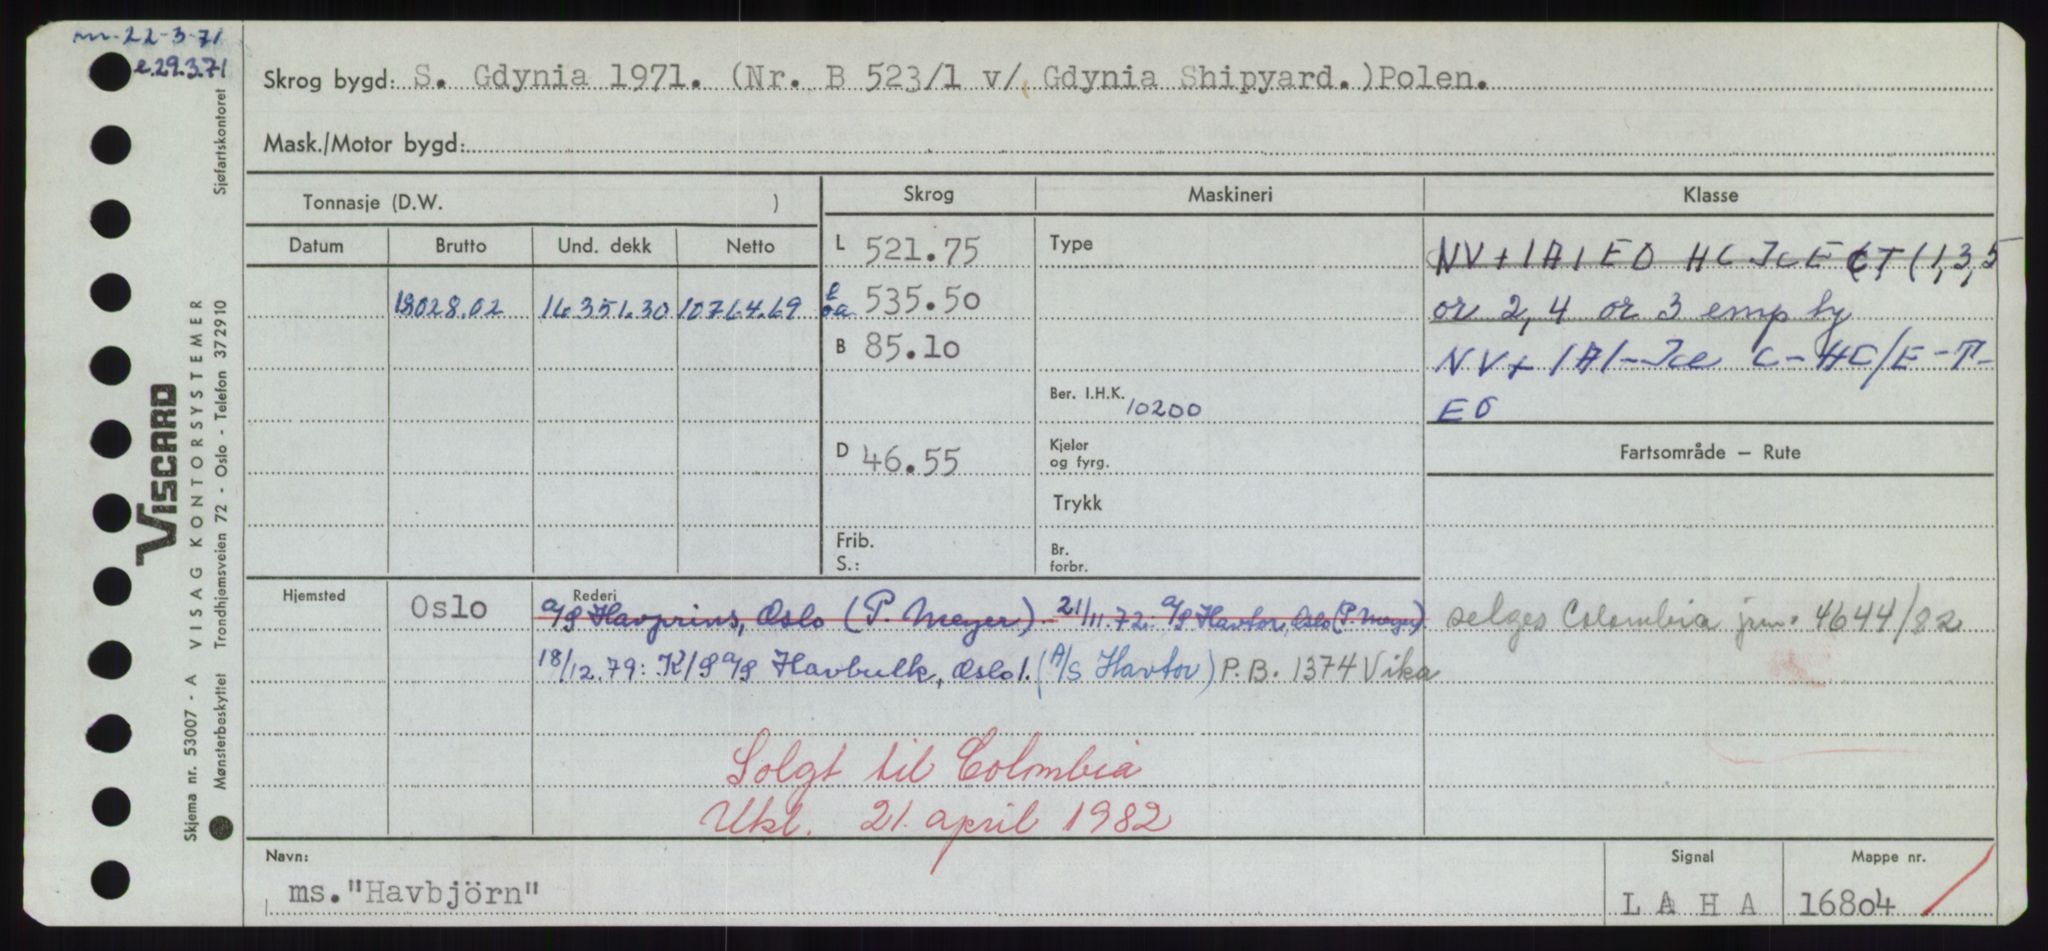 m. 22-3-71
e.29.3.71
Skrog bygd: S. Gdynia 1971. (Nr. B 523/1 v/ Gdynia Shipyard.)Polen.
Mask./Motor bygd:
Tonnasje (D.W. ) Skrog Maskineri Klasse
Datum Brutto Und. dekk Netto L 521.75 Type NV+1A1 EO HC IcE C T (1,3,5
18028.02 14351.30 10764.69 l oa 535.50 or 2,4 or 3 empty
B 85.10 NV+ 1A1-Ice C-HC/E-T-
Ber. I.H.K. 10200 EO
D 46.55 Kjeler og fyrg. Fartsområde – Rute
Trykk
Frib. Br.
S.: forbr.
Hjemsted Oslo Rederi A/S Havprins, Oslo (P. Meyer). 21/11.72: A/S Havtor, Oslo (P. Meyer) selges Colombia jrn. 4644/82
18/12.79: K/S A/S Havbulk, Oslo 1. (A/S Havtor) P.B. 1374 Vika
Solgt til Colombia
Utkl. 21. april 1982
Navn: Signal Mappe nr.
ms."Havbjörn" L A H A 16804
VISCARD
Skjema nr. 53007 - A VISAG KONTORSYSTEMER
Mønsterbeskyttet Trondhjemsveien 72 - Oslo - Telefon 372910 Sjøfartskontoret